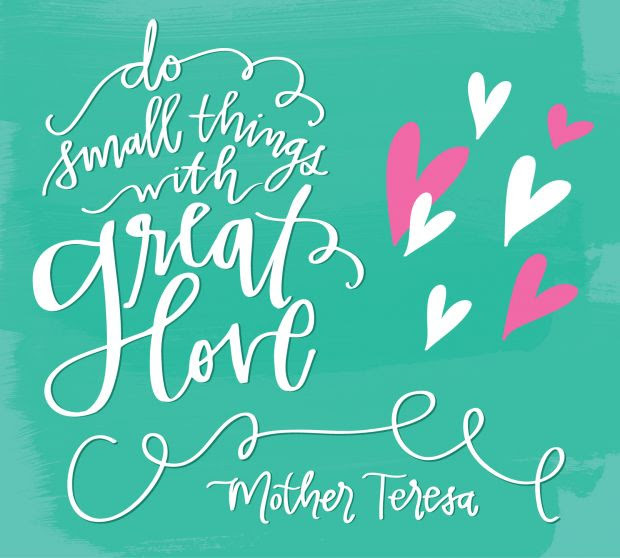 do
small things
with
great
love
Mother Teresa